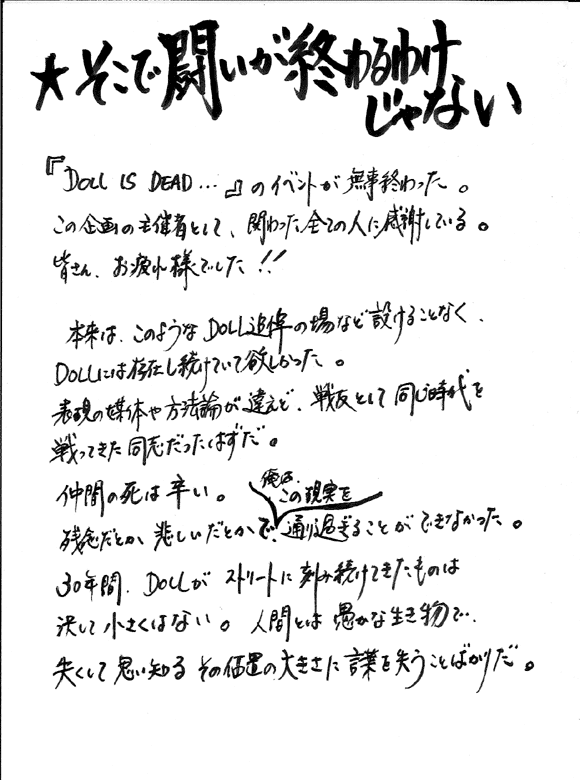 ★そこで闘いが終わるわけ
じゃない
『DOLL IS DEAD…』のイベントが無事終わった。
この企画の主催者として、関わった全ての人に感謝している。
皆さん、お疲れ様でした!!
本来は、このようなDOLL追悼の場など設けることなく、
DOLLには存在し続けていて欲しかった。
表現の媒体や方法論が違えど、戦友として同じ時代を
戦ってきた同志だったはずだ。
仲間の死は辛い。
俺は、この現実を
残念だとか、悲しいだとかで、通り過ぎることができなかった。
30年間、DOLLがストリートに刻み続けてきたものは
決して小さくはない。人間とは愚かな生き物で、
失くして思い知るその価値の大きさに言葉を失うことばかりだ。